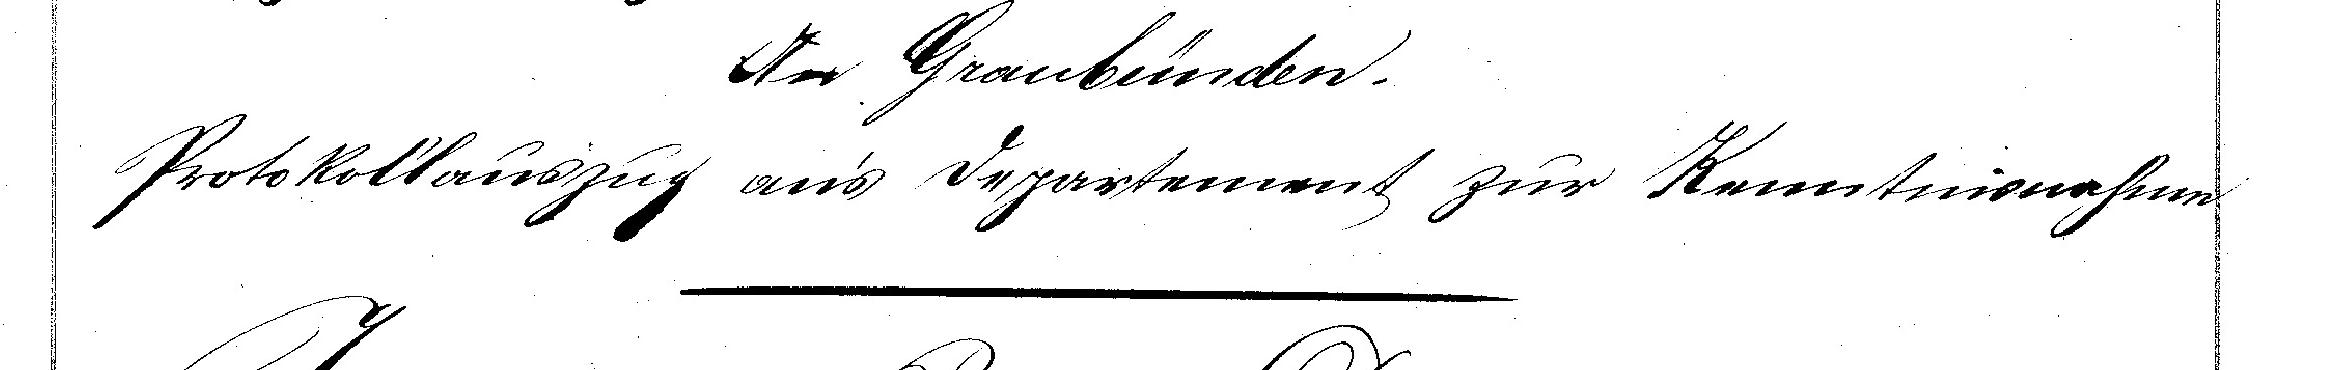 An Graubünden.
Protokollauszug an's Departement zur Kenntnisnahme